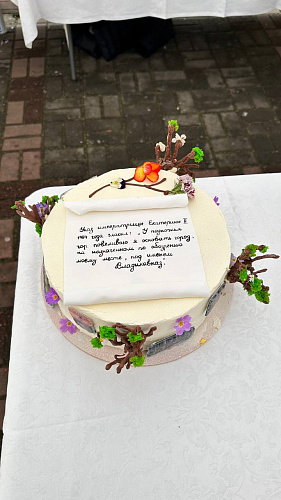 Указ императрицы Екатерины II
гласил: „У подножия
гор повелеваю я основать город,
на назначенном по обозрению
моему месте, под именем
Владикавказ."